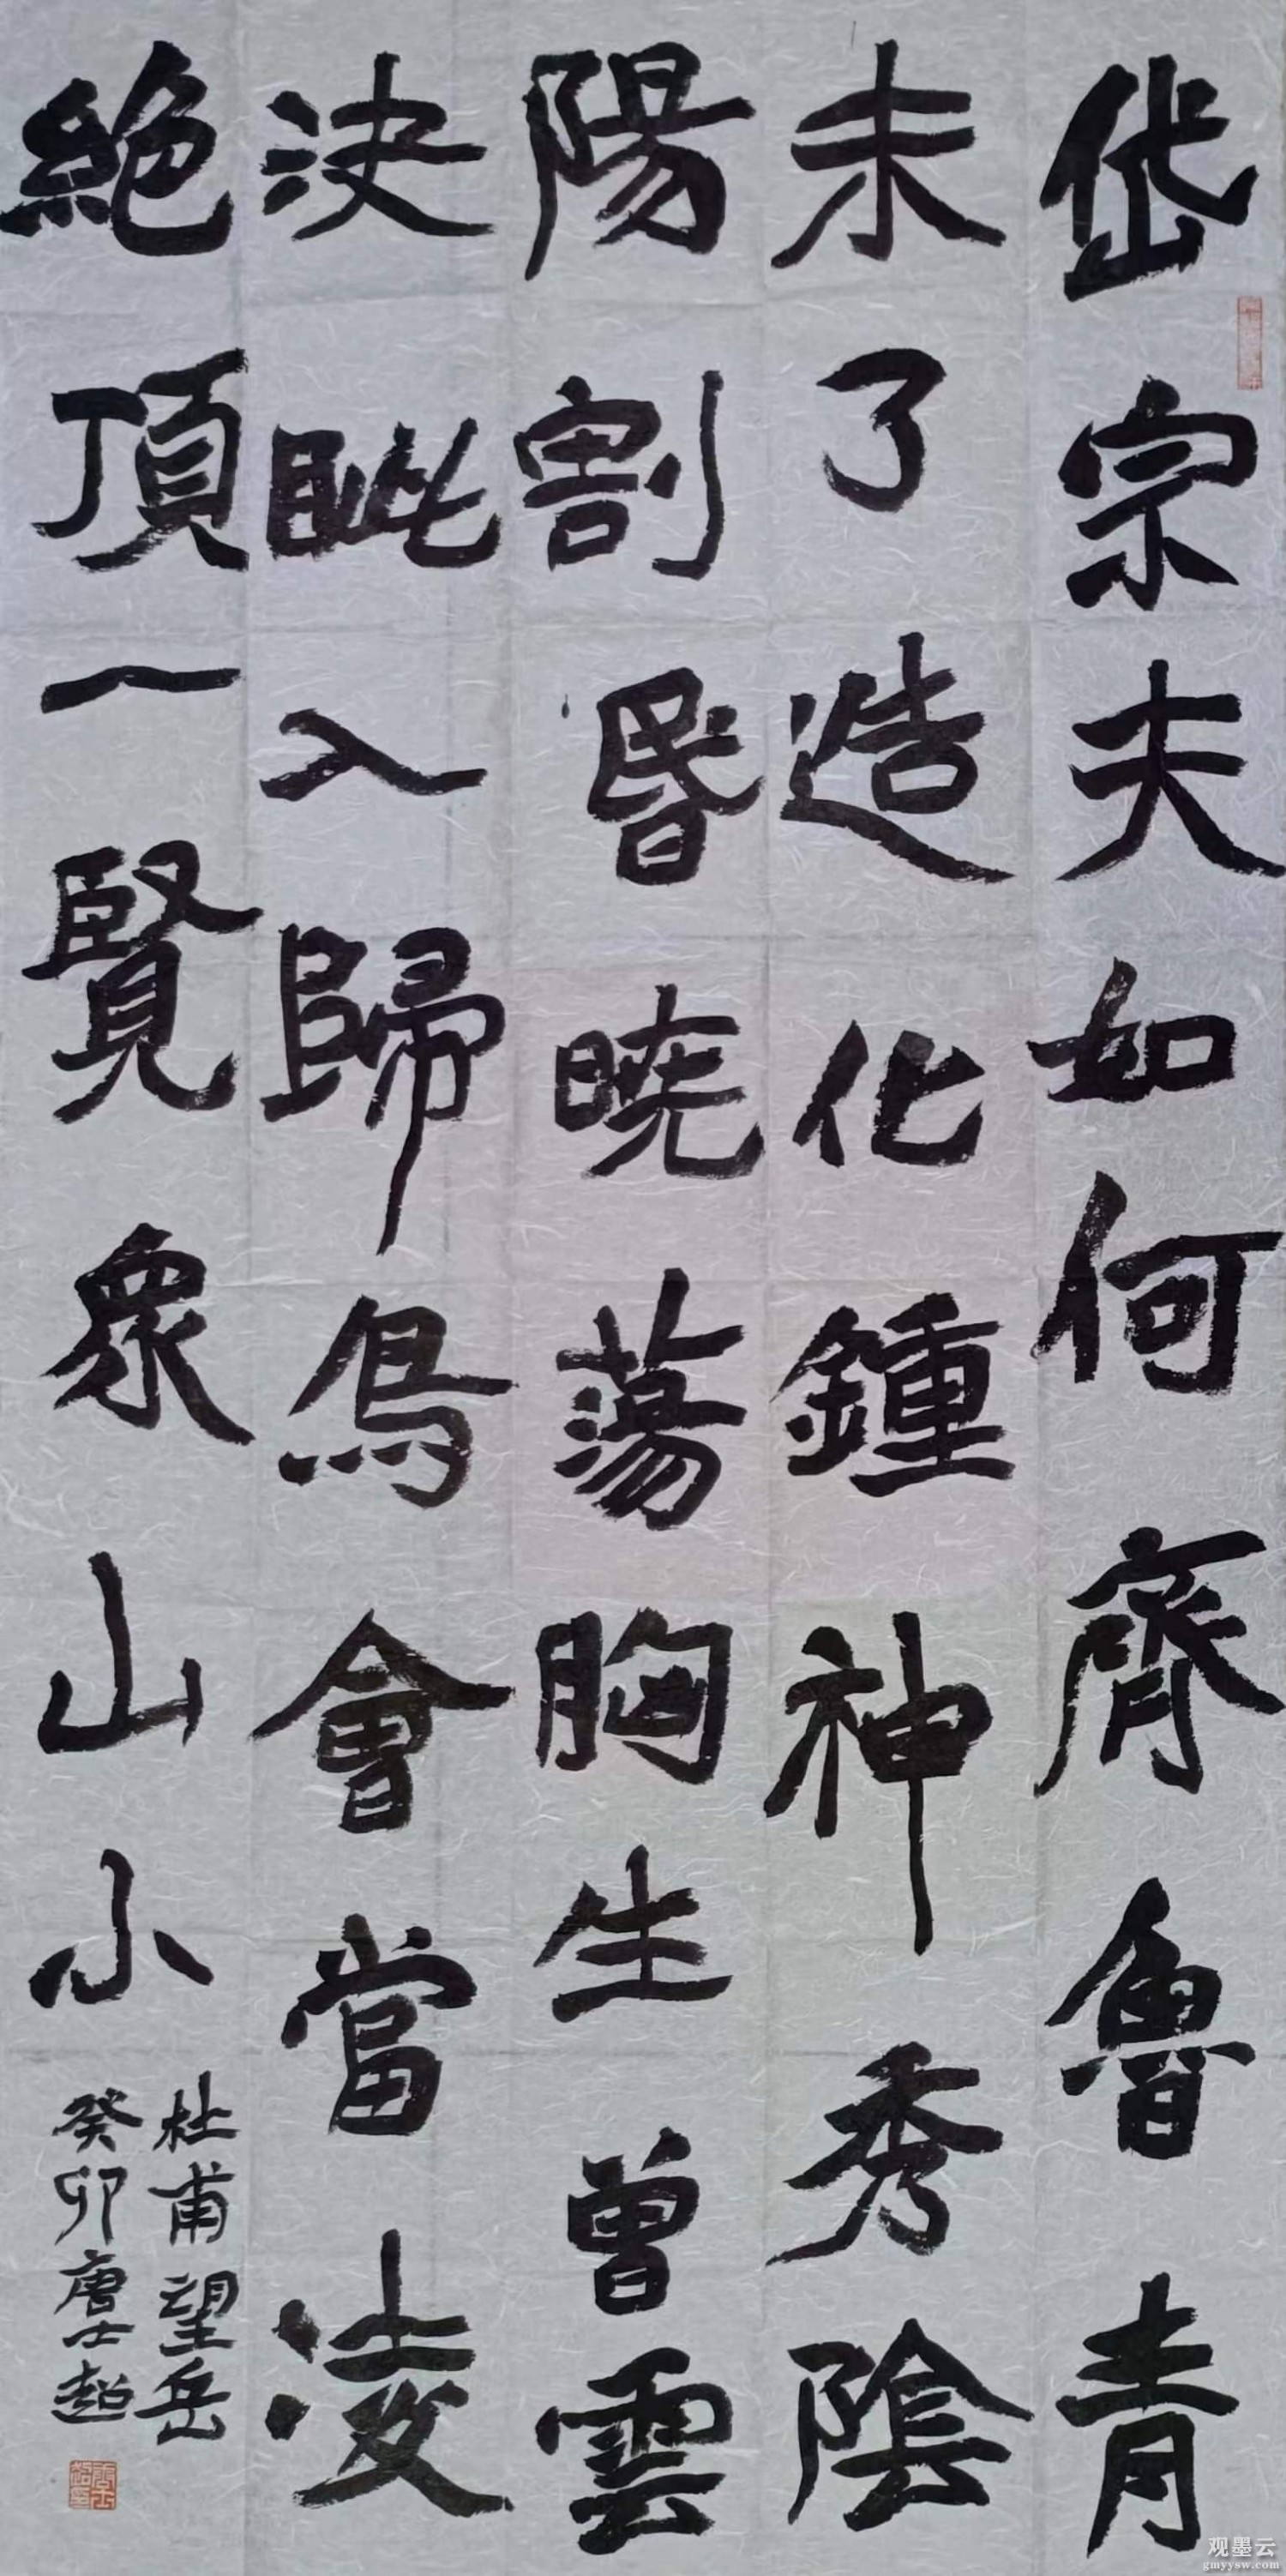 岱宗夫如何齊魯青
未了造化鍾神秀陰
陽割昏曉蕩胸生曾雲
決眦入歸鳥會當凌
絕頂一覽衆山小
杜甫望岳
癸卯唐士超
观墨云
gmyysw.com